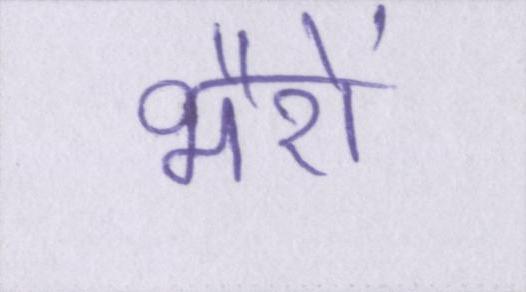 भैरों